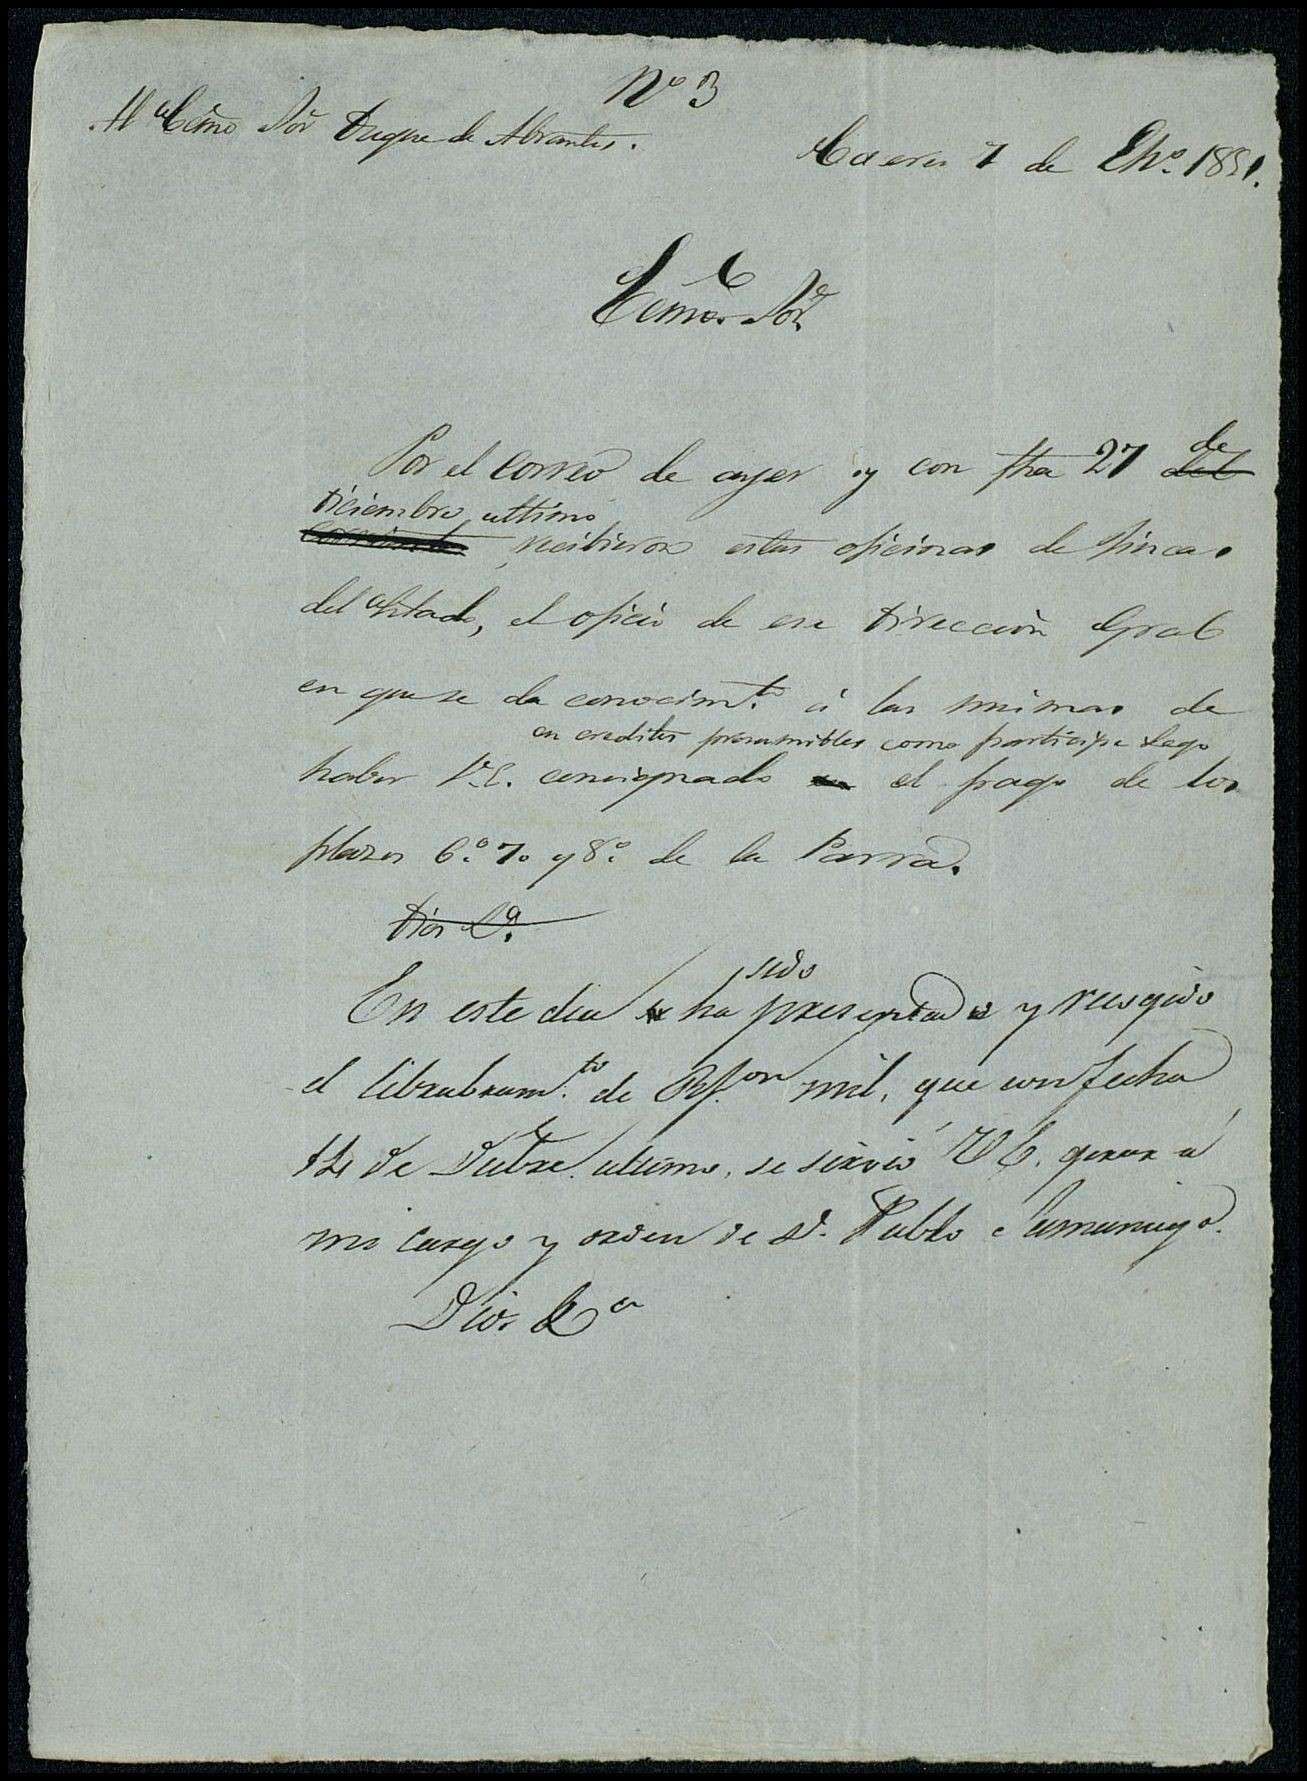 Nº 3
Al Ecmo Sor Duque de Abrantes.
Caceres 7 de Enº. 1851.
Ecmo. Sor.
Por el correo de ayer y con fha 27 del de
corriente Diciembre ultimo recibieron estas oficinas de fincas
del Estado, el oficio de esa Dirección Gral
en que se da conocimto. á las mismas de
en creditos presumibles como participe Lego
haber V.E. consignado en el pago de los
plazos 6.º 7.º y 8.º de la Parra.
Dios &a.
En este dia se ha sido presentado y recogido
el librabramto. de Rs.on mil, que con fecha
12 de Dicbre. ultimo, se sirvió V E. girar á
mi cargo y orden de D. Pablo Samaniego.
Dios &a